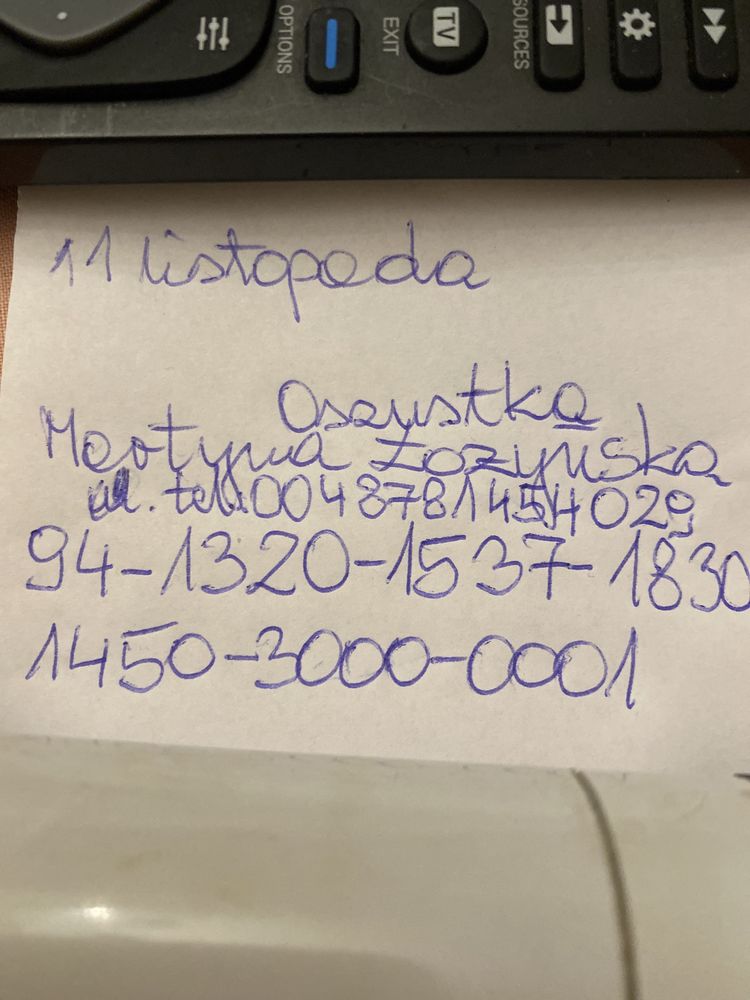 OPTIONS
EXIT
TV
SOURCES
11 listopada
Oszustka
Martyna Łozyńska
tel. 0048781454029
94-1320-1537-1830
1450-3000-0001